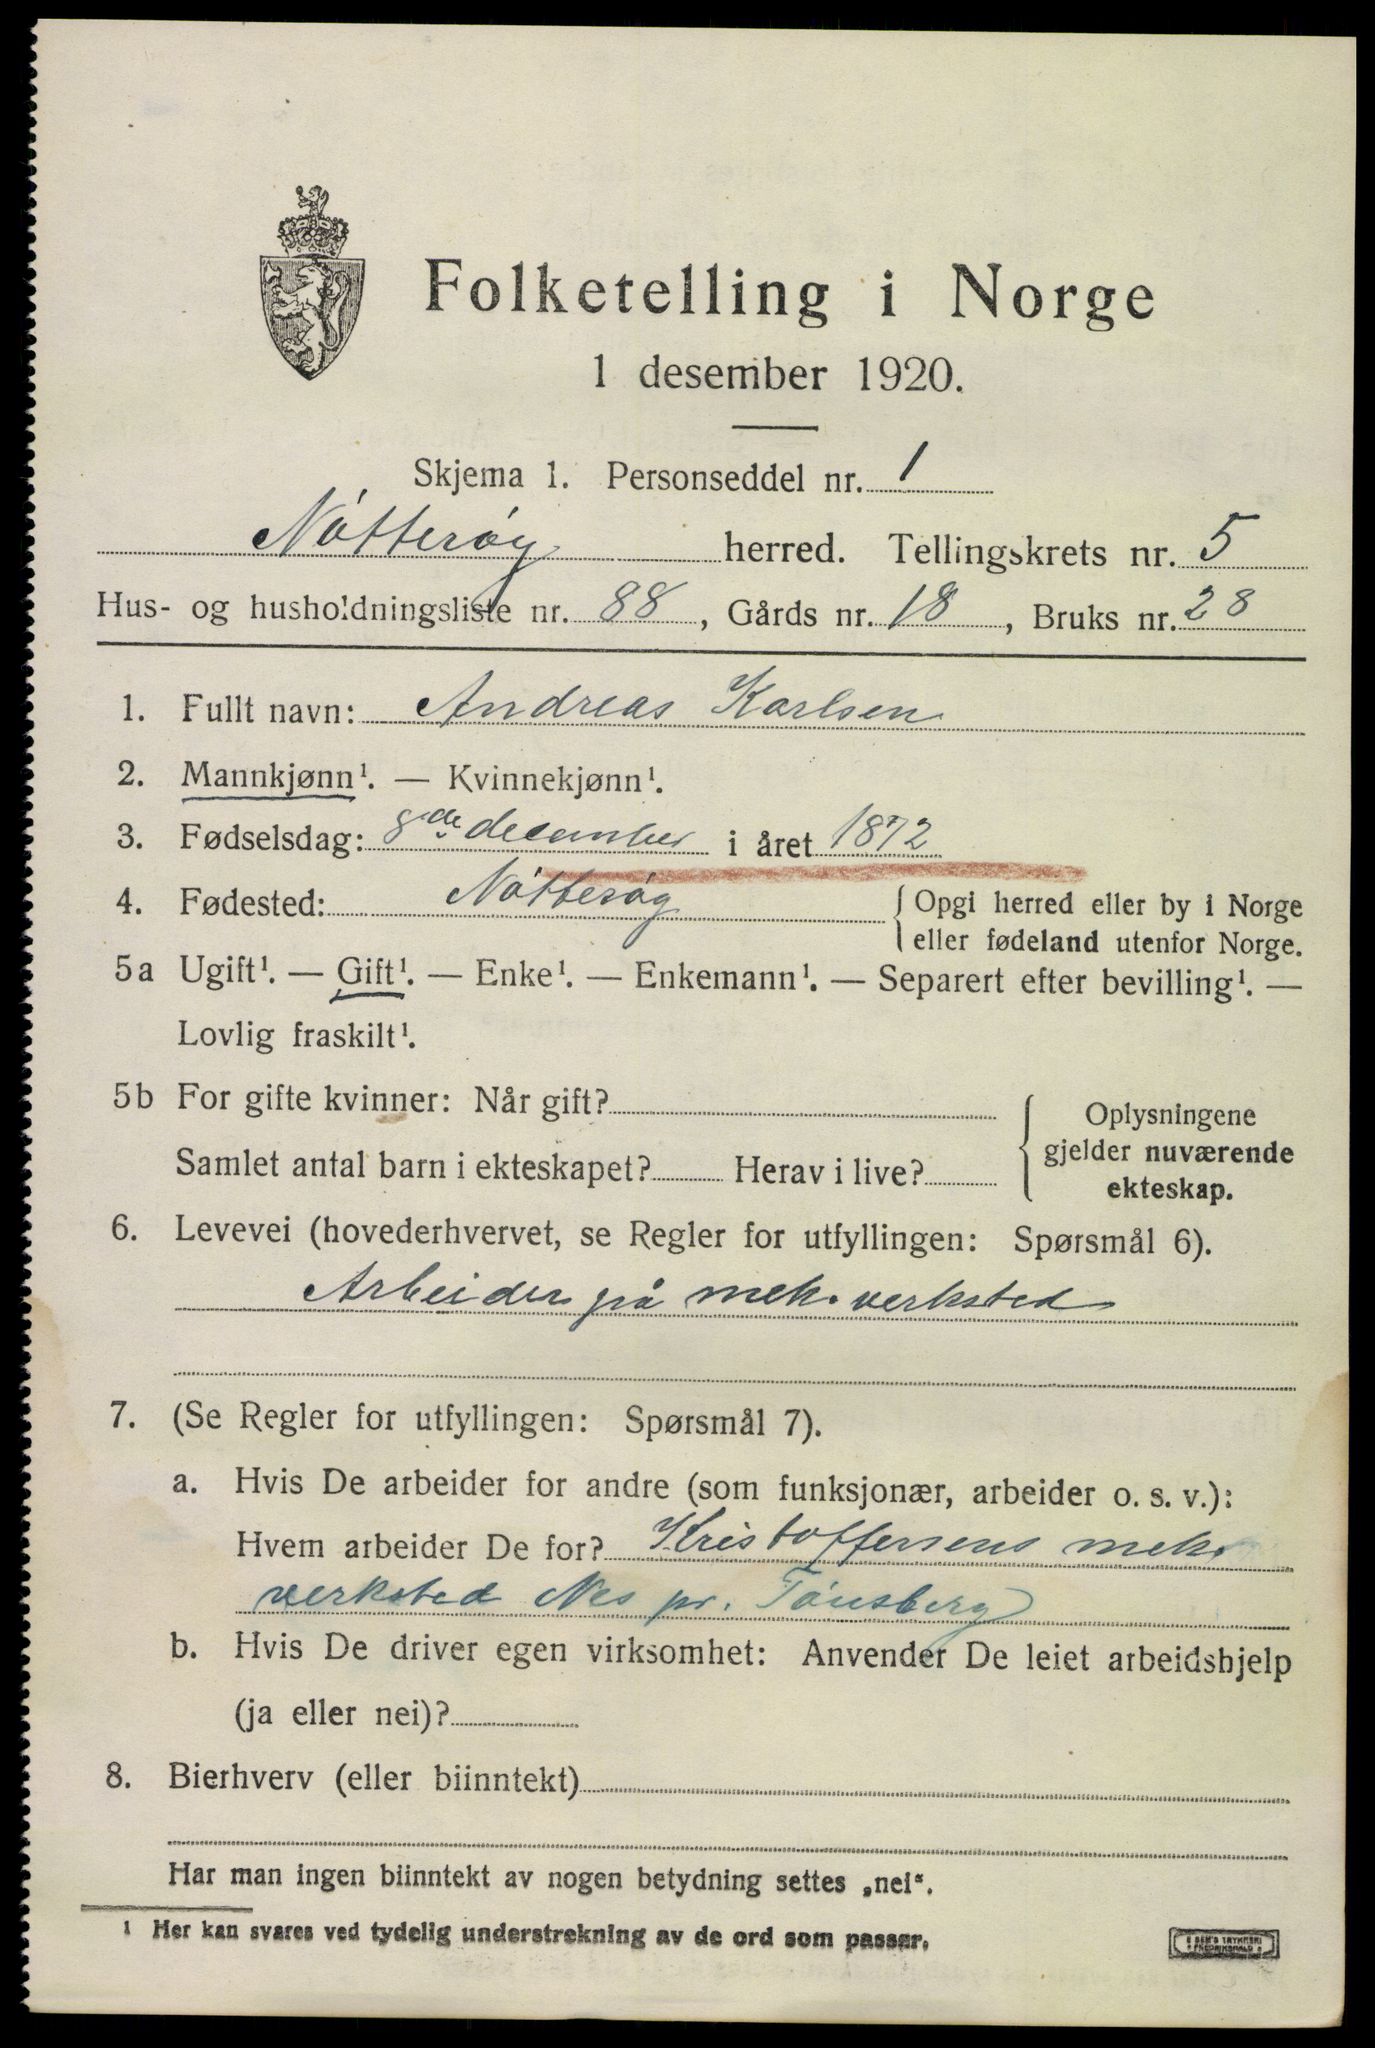 Folketelling i Norge
1 desember 1920.
Skjema 1. Personseddel nr. 1
Nøtterøy herred. Tellingskrets nr. 5
Hus- og husholdningsliste nr. 88, Gårds nr. 18, Bruks nr. 28
1. Fullt navn: Andreas Karlsen
2. Mannkjønn¹. — Kvinnekjønn¹.
3. Fødselsdag: 8de december i året 1872
4. Fødested: Nøtterøy { Opgi herred eller by i Norge
eller fødeland utenfor Norge.
5a Ugift¹. — Gift¹. — Enke¹. — Enkemann¹. — Separert efter bevilling¹. —
Lovlig fraskilt¹.
5b For gifte kvinner: Når gift?
Samlet antal barn i ekteskapet? Herav i live?
Oplysningene
gjelder nuværende
ekteskap.
6. Levevei (hovederhvervet, se Regler for utfyllingen: Spørsmål 6).
Arbeider på mek. verksted
7. (Se Regler for utfyllingen: Spørsmål 7).
a. Hvis De arbeider for andre (som funksjonær, arbeider o. s. v.):
Hvem arbeider De for? Kristoffersens mek.
verksted Nes pr. Tønsberg
b. Hvis De driver egen virksomhet: Anvender De leiet arbeidshjelp
(ja eller nei)?
8. Bierhverv (eller biinntekt)
Har man ingen biinntekt av nogen betydning settes „nei“.
¹ Her kan svares ved tydelig understrekning av de ord som passer.